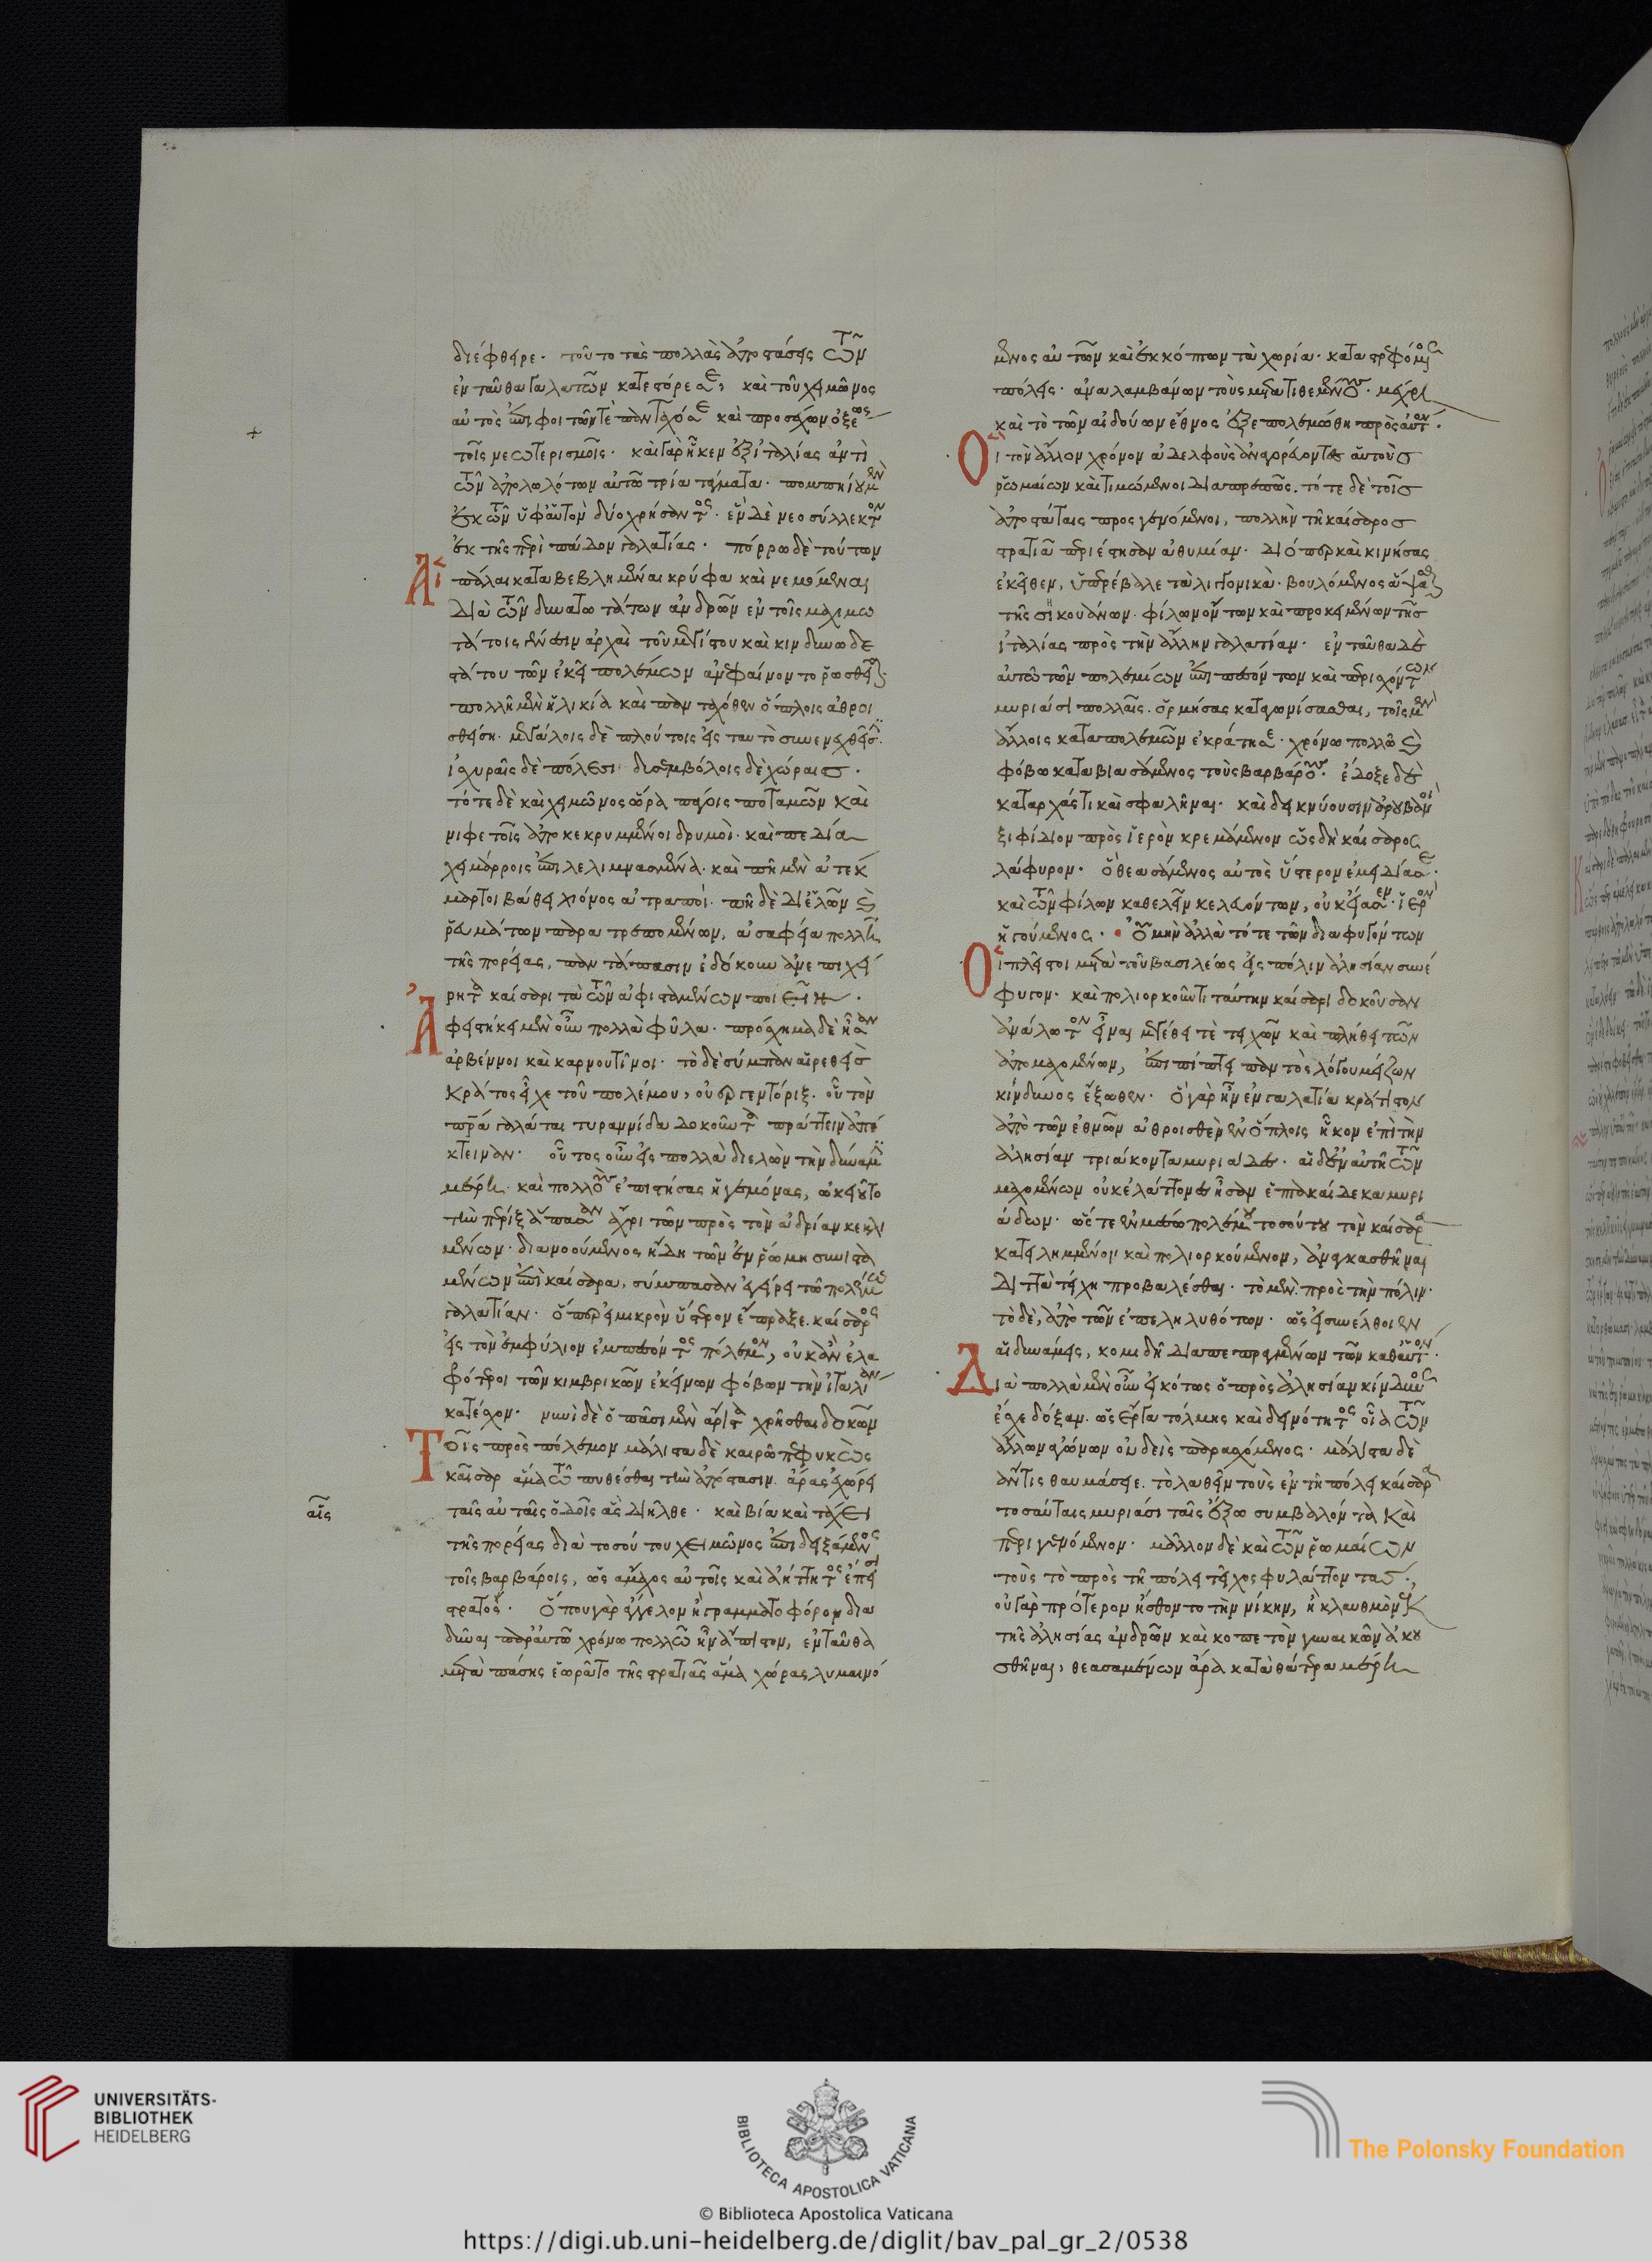 διέφθειρε. τοῦτο τὰς πολλὰς ἀποστάσεις τῶν
ἐνταῦθα Γαλατῶν κατεστόρεσε, καὶ τοῦ χειμῶνος
αὐτὸς ἐπιφοιτῶν τὲ πανταχόσε καὶ προσέχων ὀξέως
τοῖς νεωτερισμοῖς. καὶ γὰρ ἧκεν ἐξ ἰταλίας ἀντὶ
τῶν ἀπολωλότων αὐτῶ τρία τάγματα. πομπηίου μὲν
ἐκ τῶν ὑφ' αὑτὸν δύο χρήσαντος. ἓν δὲ νεοσύλλεκτον
ἐκ τῆς περὶ πάδον γαλατίας. πόρρω δὲ τούτων
Αἱ πάλαι καταβεβλημέναι κρύφα καὶ νεμόμεναι
διὰ τῶν δυνατωτάτων ἀνδρῶν ἐν τοῖς μαχιμω
τάτοις γένεσιν ἀρχαὶ τοῦ μεγίστου καὶ κινδυνωδε
στάτου τῶν ἐκεῖ πολέμων ἀνεφαίνοντο ῥωσθεῖσαι
πολλῆ μὲν ἡλικία καὶ πανταχόθεν ὅπλοις ἀθροι
σθείση. μεγάλοις δὲ πλούτοις εἰς ταυτὸ συνενεχθεῖσι.
ἰσχυραῖς δὲ πόλεσι δυσεμβόλοις δὲ χώραις.
τότε δὲ καὶ χειμῶνος ὥρα πάγοις ποταμῶν καὶ
νιφετοῖς ἀποκεκρυμμένοι δρυμοὶ. καὶ πεδία
χειμάρροις ἐπιλελιμνασμένα. καὶ πῆ μὲν ἀτέκ
μαρτοι βάθει χιόνος ἀτραποί. πῆ δὲ δι' ἑλῶν καὶ
ῥευμάτων παρατρεπομένων, ἀσάφεια πολλὴ
τῆς πορείας, παντάπασιν ἐδόκουν ἀνεπιχεί
ρητα καίσαρι τὰ τῶν ἀφισταμένων ποιεῖν.
Ἀφειστήκει μὲν οὖν πολλὰ φῦλα. πρόσχημα δὲ ἦσαν
ἀρβέννοι καὶ καρνουτῖνοι. τὸ δὲ σύμπαν αἱρεθεὶς
κράτος εἶχε τοῦ πολέμου, οὐεργεντόριξ. οὗ τὸν
πατέρα γαλάται τυραννίδα δοκοῦντα πράττειν ἀπέ
κτειναν. οὗτος οὖν εἰς πολλὰ διελὼν τὴν δύναμιν
μέρη. καὶ πολλοὺς ἐπιστήσας ἡγεμόνας, ὠκειοῦτο
τὴν πέριξ ἅπασαν ἄχρι τῶν πρὸς τὸν ἀδρίαν κεκλι
μένων. διανοούμενος ἤδη τῶν ἐν ῥώμη συνιστα
μένων ἐπὶ καίσαρα, σύμπασαν ἐγείρειν τῶ πολέμω
γαλατίαν. ὅπερ εἰ μικρὸν ὕστερον ἔπραξε. καίσαρος
εἰς τὸν ἐμφύλιον ἐμπεσόντος πόλεμον, οὐκ ἂν ἐλα
φρότεροι τῶν κιμβρικῶν ἐκείνων φόβων τὴν ἰταλίαν
κατέσχον. νυνὶ δὲ ὁ πᾶσι μὲν ἄριστα χρῆσθαι δοκῶν
Τοῖς πρὸς πόλεμον μάλιστα δὲ καιρῶ πεφυκὼς
καῖσαρ ἅμα τῶ πυθέσθαι τὴν ἀπόστασιν. ἄρας ἐχώρει
ταῖς αὐταῖς ὁδοῖς αἷς διῆλθε. καὶ βία καὶ τάχει
τῆς πορείας διὰ τοσούτου χειμῶνος ἐπιδειξάμενος
τοῖς βαρβάροις, ὡς ἄμαχος αὐτοῖς καὶ ἀήττητος ἔπεισι
στρατός. ὅπου γὰρ ἄγγελον ἢ γραμματοφόρον δια
δῦναι παρ' αὐτοῦ χρόνω πολλῶ ἦν ἄπιστον, ἐνταῦθα
μετὰ πάσης ἑωρᾶτο τῆς στρατιᾶς ἅμα χώρας λυμαινό
αἷς
μενος αὐτῶν καὶ ἐκκόπτων τὰ χωρία. καταστρεφόμενος
πόλεις. ἀναλαμβάνων τοὺς μετατιθεμένους. μέχρι
καὶ τὸ τῶν αἰδούων ἔθνος ἐξεπολεμώθη πρὸς αὐτόν.
Οἳ τὸν ἄλλον χρόνον ἀδελφοὺς ἀναγορεύοντες αὑτοὺς
ῥωμαίων καὶ τιμώμενοι διαπρεπῶς. τότε δὲ τοῖς
ἀποστάταις προσγενόμενοι, πολλὴν τῆ καίσαρος
στρατιᾶ περιέστησαν ἀθυμίαν. διόπερ καὶ κινήσας
ἐκεῖθεν, ὑπερέβαλε τὰ λιγγονικὰ. βουλόμενος ἅψασθαι
τῆς σηκουανῶν. φίλων ὄντων καὶ προκειμένων τῆς
ἰταλίας πρὸς τὴν ἄλλην γαλατίαν. ἐνταῦθα δὲ
αὐτῶ τῶν πολεμίων ἐπιπεσόντων καὶ περισχόντων
μυριάσι πολλαῖς. ὁρμήσας καταγωνίσασθαι, τοῖς μὲν
ἄλλοις καταπολεμῶν ἐκράτησε. χρόνω πολλῶ καὶ
φόβω καταβιασάμενος τοὺς βαρβάρους. ἔδοξε δὲ
καταρχάς τι καὶ σφαλῆναι. καὶ δεικνύουσιν ἀρουβανοὶ
ξιφίδιον πρὸς ἱερὸν κρεμάμενον ὡς δὴ καίσαρος
λάφυρον. ὃ θεασάμενος αὐτὸς ὕστερον ἐμειδίασε.
καὶ τῶν φίλων καθελεῖν κελευόντων, οὐκ εἴασεν. ἱερὸν
ἡγούμενος. Οὐ μὴν ἀλλὰ τότε τῶν διαφυγόντων
Οἱ πλεῖστοι μετὰ τοῦ βασιλέως εἰς πόλιν ἀλησίαν συνέ
φυγον. καὶ πολιορκοῦντι ταύτην καίσαρι δοκοῦσαν
ἀνάλωτον εἶναι μεγέθει τὲ τειχῶν καὶ πλήθει τῶν
ἀπομαχομένων, ἐπιπίπτει παντὸς λόγου μείζων
κίνδυνος ἔξωθεν. ὃ γὰρ ἦν ἐν γαλατία κράτιστον
ἀπὸ τῶν ἐθνῶν ἀθροισθὲν ἐν ὅπλοις ἧκον ἐπὶ τὴν
ἀλησίαν τριάκοντα μυριάδες. αἱ δ' ἐν αὐτῆ τῶν
μαχομένων οὐκ ἐλάττονες ἦσαν ἑπτακαίδεκα μυρι
άδων. ὥστε ἐν μέσω πολέμου τοσούτου τὸν καίσαρα
κατειλημμένον καὶ πολιορκούμενον, ἀναγκασθῆναι
διττὰ τείχη προβαλέσθαι. τὸ μὲν. πρὸς τὴν πόλιν.
τὸ δὲ, ἀπὸ τῶν ἐπεληλυθότων. ὡς εἰ συνέλθοιεν
αἱ δυνάμεις, κομιδῆ διαπεπραγμένων τῶν καθ' αὑτόν.
Διὰ πολλὰ μὲν οὖν εἰκότως ὁ πρὸς ἀλησίαν κίνδυνος
ἔσχε δόξαν. ὡς ἔργα τόλμης καὶ δεινότητος οἷα τῶν
ἄλλων ἀγώνων οὐδεὶς παρασχόμενος. μάλιστα δὲ
ἄν τις θαυμάσειε. τὸ λαθεῖν τοὺς ἐν τῆ πόλει καίσαρα
τοσαύταις μυριάσι ταῖς ἔξω συμβαλόντα καὶ
περιγενόμενον. μᾶλλον δὲ καὶ τῶν ῥωμαίων
τοὺς τὸ πρὸς τῆ πόλει τεῖχος φυλάττοντας.,
οὐ γὰρ πρότερον ἤσθοντο τὴν νίκην, ἢ κλαυθμὸν ἐκ
τῆς ἀλησίας ἀνδρῶν καὶ κοπετὸν γυναικῶν ἀκου
σθῆναι, θεασαμένων ἄρα κατὰ θάτερα μέρη
UNIVERSITÄTS-
BIBLIOTHEK
HEIDELBERG
BIBLIOTECA APOSTOLICA VATICANA
The Polonsky Foundation
© Biblioteca Apostolica Vaticana
https://digi.ub.uni-heidelberg.de/diglit/bav_pal_gr_2/0538